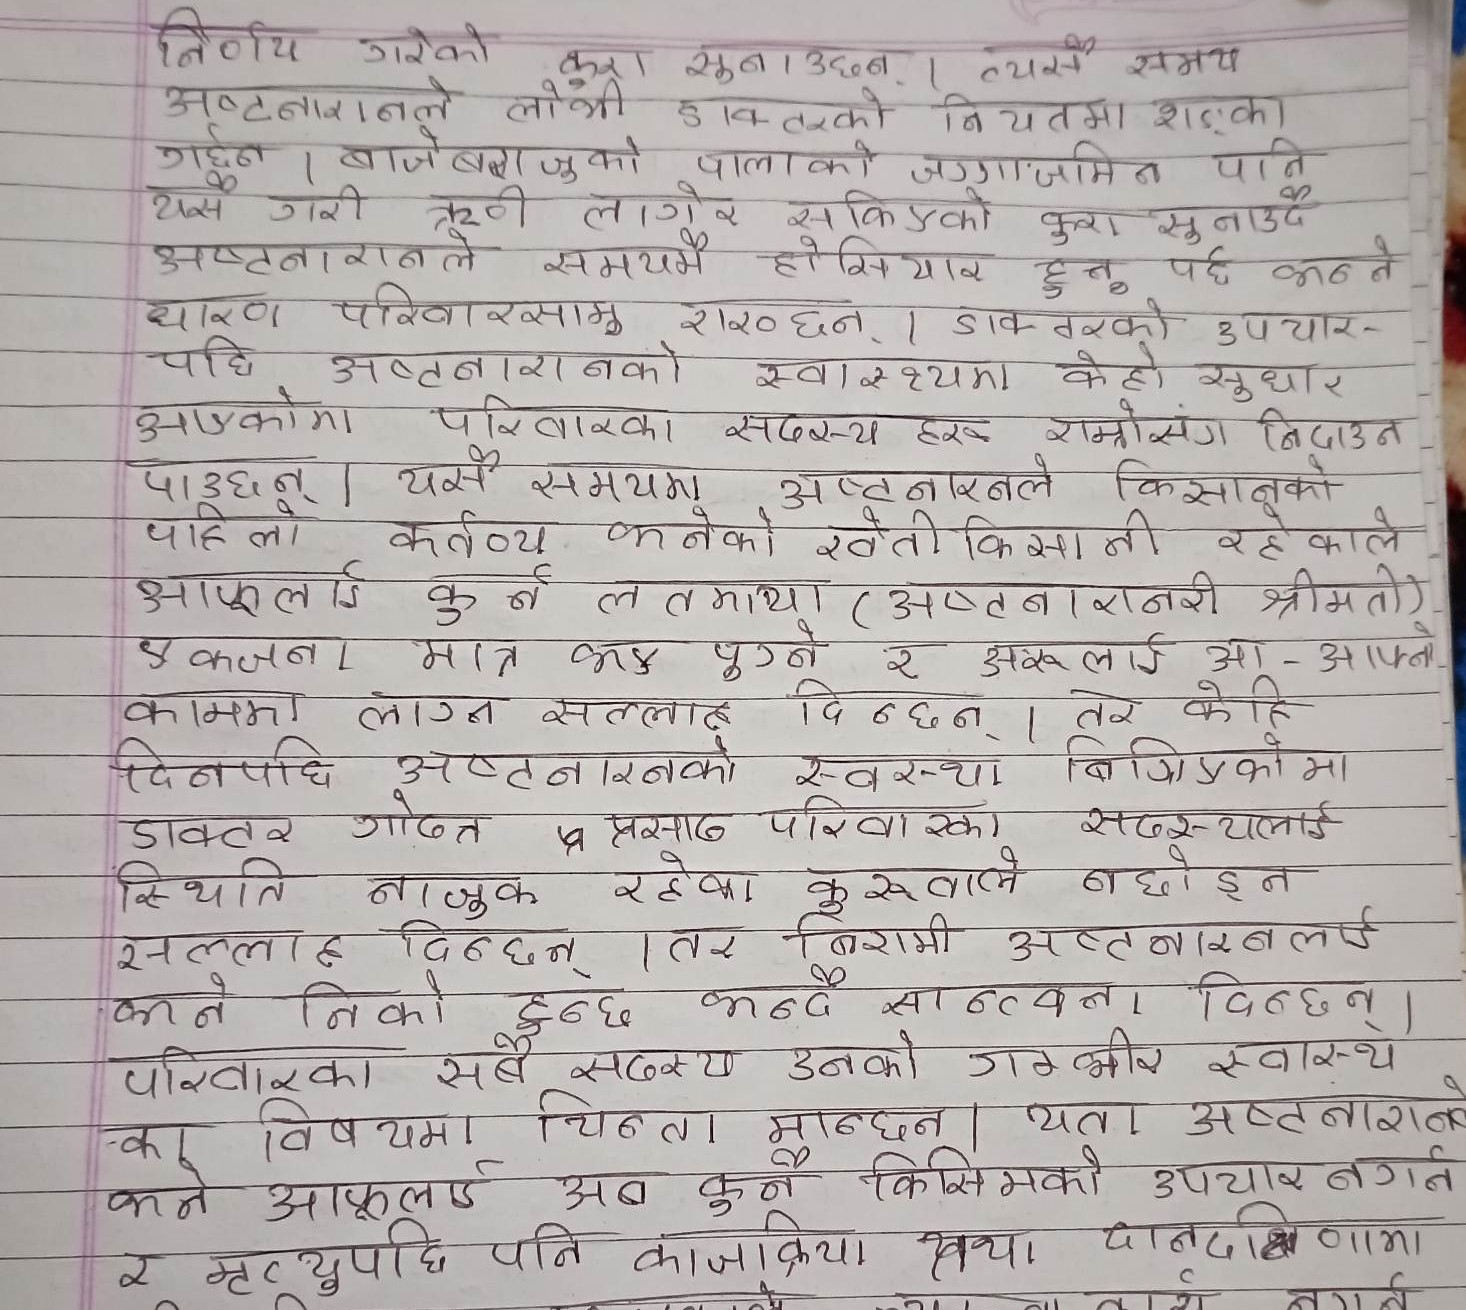 निर्णय गरेको कुरा सुनाउछन् । त्यसै समय
अष्टनारानले लोभी डाक्तरको नियतमा शङ्का
गर्छन । बाजेबराजुको पालाको जग्गाजमिन पनि
यसै गरी ऋणी लागेर सकिएको कुरा सुनाउदै
अष्टनारानले समयमै होसियार हुनु पर्छ भन्ने
धारणा परिवारसामु राख्छन् । डाक्तरको उपचार-
पछि अष्टनारानको स्वास्थ्यमा केही सुधार
आएकोमा परिवारका सदस्य हरू राम्रोसंग निदाउन
पाउछन् । यसै समयमा अष्टनारनले किसानको
पहिलो कर्तव्य भनेको खेती किसानी रहेकाले
आफूलाई कुर्न लतमाया (अष्टनारानरी श्रीमती)
एकजना मात्र भए पुग्ने र अरूलाई आ-आफ्नो
काममा लाग्न सल्लाह दिन्छन् । तर केहि
दिनपछि अष्टनारनको स्वस्था बिग्रिएकोमा
डाक्तर गोदत्त प्रसाद परिवारका सदस्यलाई
स्थिति नाजुक रहेका कुरूवाले नछोड्न
सल्लाह दिन्छन् । तर बिरामी अष्टनारनलाई
भने निको हुन्छ भन्दै सान्त्वना दिन्छन् ।
परिवारका सबै सदस्य उनको गम्भीर स्वास्थ्य
का विषयमा चिन्ता मान्छन । यता अष्टनारान
भने आफूलाई अब कुनै किसिमको उपचार नगर्न
र मृत्युपछि पनि काजक्रिया तथा दानदक्षिणामा